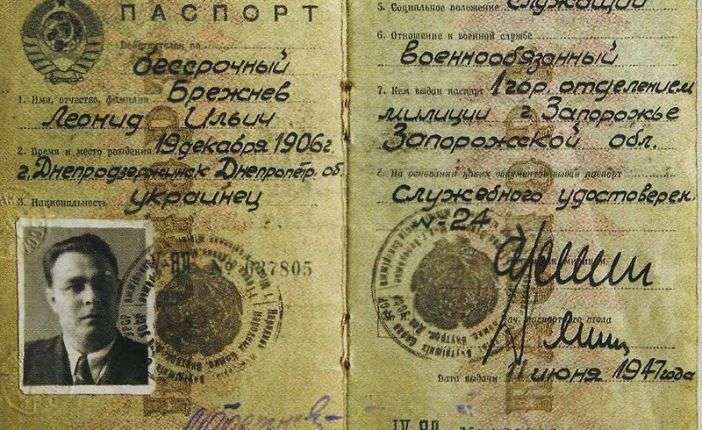 ПАСПОРТ
Действителен по
бессрочный
1. Имя, отчество, фамилия Брежнев
Леонид Ильич
2. Время и место рождения 19 декабря 1906 г.
г. Днепродзержинск Днепропетр. об.
3. Национальность украинец
№ 637805
5. Социальное положение служащий
6. Отношение к военной службе
военнообязанный
7. Кем выдан паспорт 1 гор. отделением
милиции г. Запорожье
Запорожской обл.
8. На основании каких документов выдан паспорт
служебного удостоверен.
№ 24
Нач. паспортного стола
Дата выдачи 11 июня 1947 года